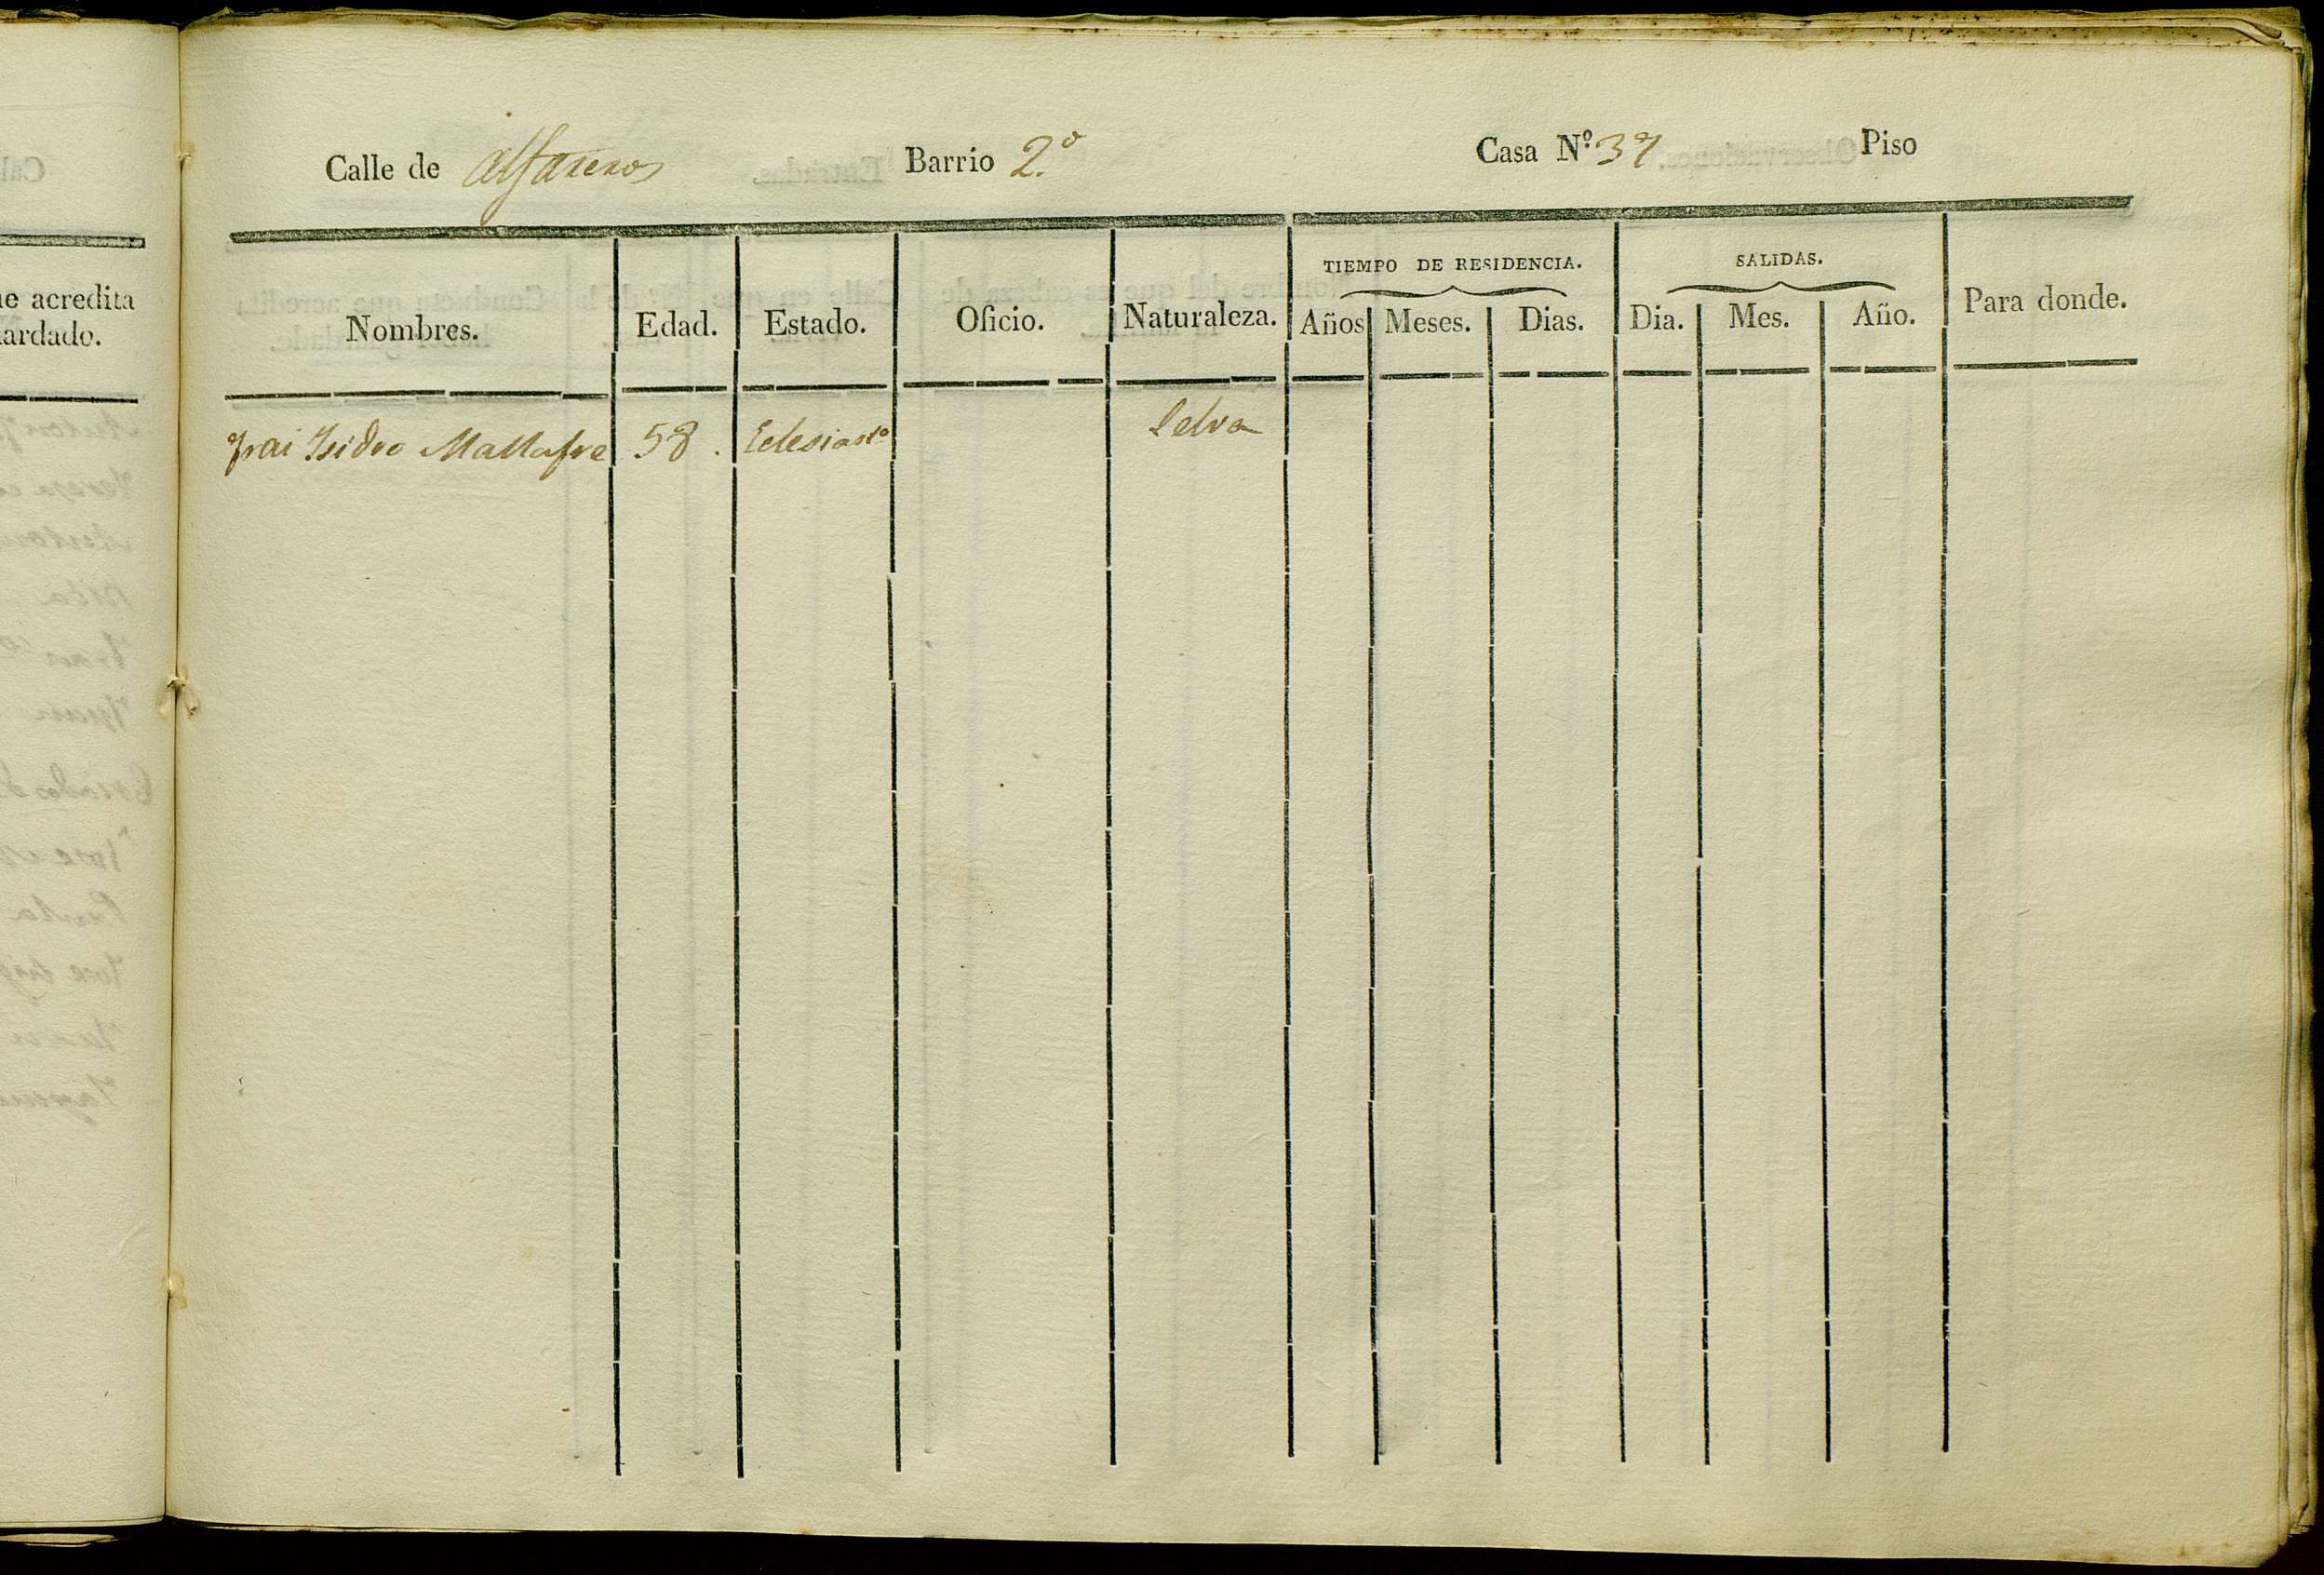 Calle de Alfareros Barrio 2.º Casa N.º 37 Piso
TIEMPO DE RESIDENCIA. SALIDAS.
Nombres. Edad. Estado. Oficio. Naturaleza. Años Meses. Dias. Dia. Mes. Año. Para donde.
Frai Isidro Mallafre 58. Eclesiastº Selva
e acredita
ardado.